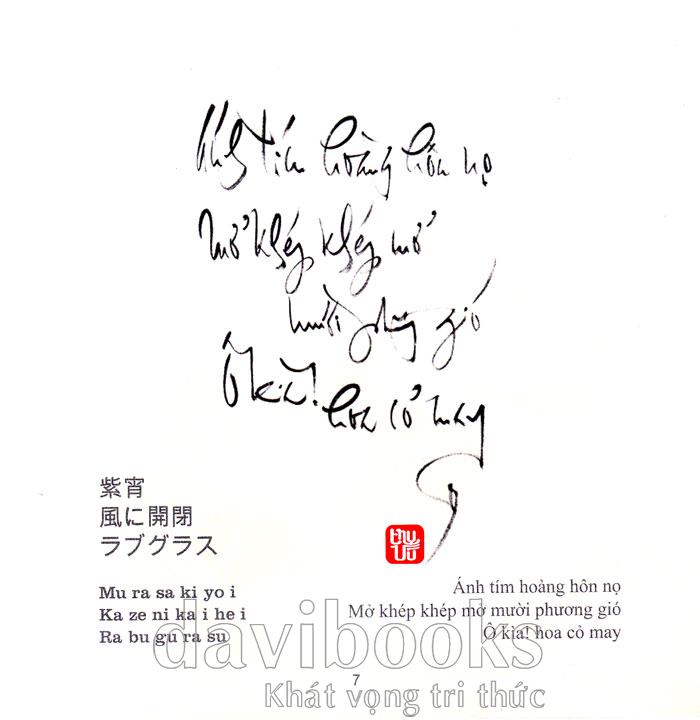 Ánh tím hoàng hôn nọ
Mở khép khép mở
mười phương gió
Ô kìa!
hoa cỏ may
thu
Uu
紫宵
風に開閉
ラブグラス
Mu ra sa ki yo i
Ka ze ni ka i he i
Ra bu gu ra su
Ánh tím hoàng hôn nọ
Mở khép khép mở mười phương gió
Ô kìa! hoa cỏ may
davibooks
7
Khát vọng tri thức